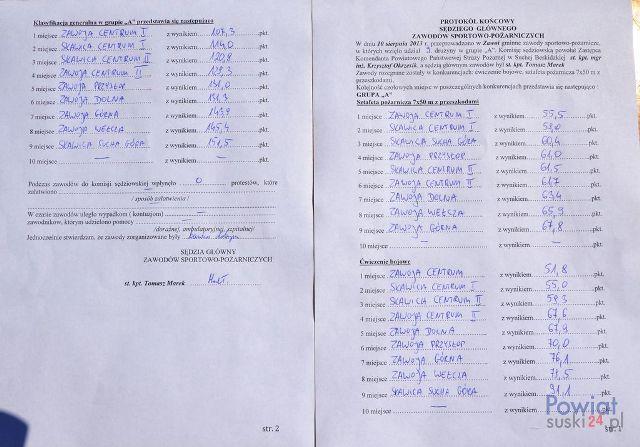 Klasyfikacja generalna w grupie „A" przedstawia się następująco
1 miejsce ZAWOJA CENTRUM I z wynikiem 107,3 pkt.
2 miejsce SKAWICA CENTRUM I z wynikiem 114,0 pkt.
3 miejsce SKAWICA CENTRUM II z wynikiem 120,8 pkt.
4 miejsce ZAWOJA CENTRUM II z wynikiem 129,3 pkt.
5 miejsce ZAWOJA PRZYSŁOP z wynikiem 131,0 pkt.
6 miejsce ZAWOJA DOLNA z wynikiem 131,3 pkt.
7 miejsce ZAWOJA GÓRNA z wynikiem 143,9 pkt.
8 miejsce ZAWOJA WEŁCZA z wynikiem 145,4 pkt.
9 miejsce SKAWICA SUCHA GÓRA z wynikiem 151,5 pkt.
10 miejsce — z wynikiem — pkt.
Podczas zawodów do komisji sędziowskiej wpłynęło 0 protestów, które
załatwiono —
/ sposób załatwienia /
W czasie zawodów uległo wypadkom ( kontuzjom) —
zawodników, którym udzielono pomocy —
/doraźnej, ambulatoryjnej, szpitalnej/
Jednocześnie stwierdzam, że zawody zorganizowane były
SĘDZIA GŁÓWNY
ZAWODÓW SPORTOWO-POŻARNICZYCH
st. kpt. Tomasz Marek
str. 2
PROTOKÓŁ KOŃCOWY
SĘDZIEGO GŁÓWNEGO
ZAWODÓW SPORTOWO-POŻARNICZYCH
W dniu 10 sierpnia 2013 r. przeprowadzono w Zawoi gminne zawody sportowo-pożarnicze,
w których wzięło udział 9 drużyny w grupie „A". Komisję sędziowską powołał Zastępca
Komendanta Powiatowego Państwowej Straży Pożarnej w Suchej Beskidzkiej st. kpt. mgr
inż. Krzysztof Okrzesik, a sędzią głównym zawodów był st. kpt. Tomasz Marek
Zawody rozegrane zostały w konkurencjach: ćwiczenie bojowe, sztafeta pożarnicza 7x50 m z
przeszkodami.
Kolejność czołowych miejsc w poszczególnych konkurencjach przedstawia się następująco:
GRUPA „A"
Sztafeta pożarnicza 7x50 m z przeszkodami
1 miejsce ZAWOJA CENTRUM I z wynikiem 55,5 pkt.
2 miejsce SKAWICA CENTRUM I z wynikiem 59,0 pkt.
3 miejsce SKAWICA SUCHA GÓRA z wynikiem 60,4 pkt.
4 miejsce ZAWOJA PRZYSŁOP z wynikiem 61,0 pkt.
5 miejsce SKAWICA CENTRUM II z wynikiem 61,5 pkt.
6 miejsce ZAWOJA CENTRUM II z wynikiem 61,7 pkt.
7 miejsce ZAWOJA DOLNA z wynikiem 63,4 pkt.
8 miejsce ZAWOJA WEŁCZA z wynikiem 65,9 pkt.
9 miejsce ZAWOJA GÓRNA z wynikiem 67,8 pkt.
10 miejsce — z wynikiem — pkt.
Ćwiczenie bojowe
1 miejsce ZAWOJA CENTRUM z wynikiem 51,8 pkt.
2 miejsce SKAWICA CENTRUM I z wynikiem 55,0 pkt.
3 miejsce SKAWICA CENTRUM II z wynikiem 59,3 pkt.
4 miejsce ZAWOJA CENTRUM II z wynikiem 67,6 pkt.
5 miejsce ZAWOJA DOLNA z wynikiem 67,9 pkt.
6 miejsce ZAWOJA PRZYSŁOP z wynikiem 70,0 pkt.
7 miejsce ZAWOJA GÓRNA z wynikiem 76,1 pkt.
8 miejsce ZAWOJA WEŁCZA z wynikiem 79,5 pkt.
9 miejsce SKAWICA SUCHA GÓRA z wynikiem 91,1 pkt.
10 miejsce — z wynikiem
str. 1
Powiat
suski24.pl